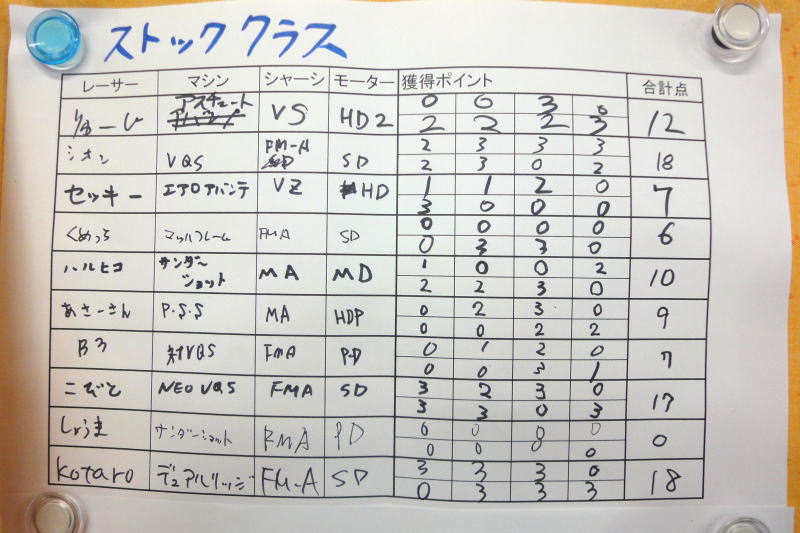 ストッククラス
レーサー マシン シャーシ モーター 獲得ポイント 合計点
りゅーじ アスチュート VS HD2 0 0 3 0 12
2 2 2 3
シオン VQS FM-A SD 2 3 3 3 18
2 3 0 2
セッキー エアロアバンテ VZ HD 1 1 2 0 7
3 0 0 0
くめっち マッハフレーム FMA SD 0 0 0 0 6
0 3 3 0
ハルヒコ サンダーショット MA MD 1 0 0 2 10
2 2 3 0
あさーさん P.S.S MA HDP 0 2 3 0 9
0 0 2 2
B3 VQS FMA PD 0 1 2 0 7
0 0 3 1
こびと NEO VQS FMA SD 3 2 3 0 17
3 3 0 3
しょうま サンダーショット RMA PD 0 0 0 0 0
0 0 0 0
kotaro デュアルリッジ FM-A SD 3 3 3 0 18
0 3 3 3